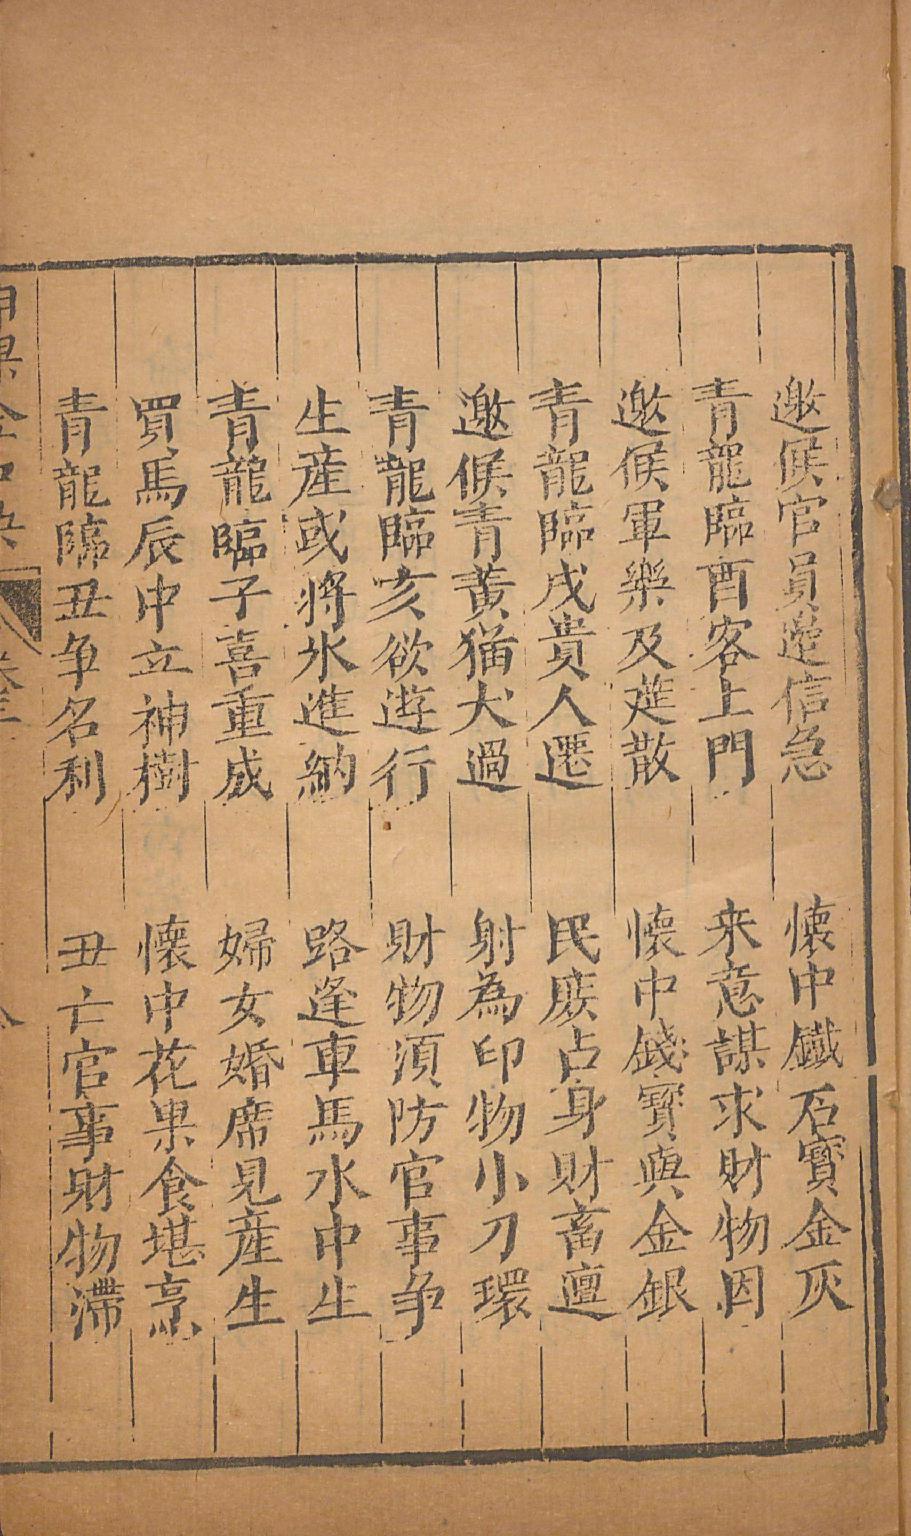 邀候官員遠信急　懷中鐵石寶金灰
青龍臨酉客上門　来意謀求財物因
邀候軍樂及筵散　懷中錢寶與金銀
青龍臨戌貴人遷　民廢占身財畜邅
邀候青黃猫犬過　射為印物小刀環
青龍臨亥欲遊行　財物湏防官事争
生産或將氷進納　路逢車馬水中生
青龍臨子喜重成　婦女婚席見産生
買馬辰中立神樹　懷中花果食堪烹
青龍臨丑争名利　丑亡官事財物滯